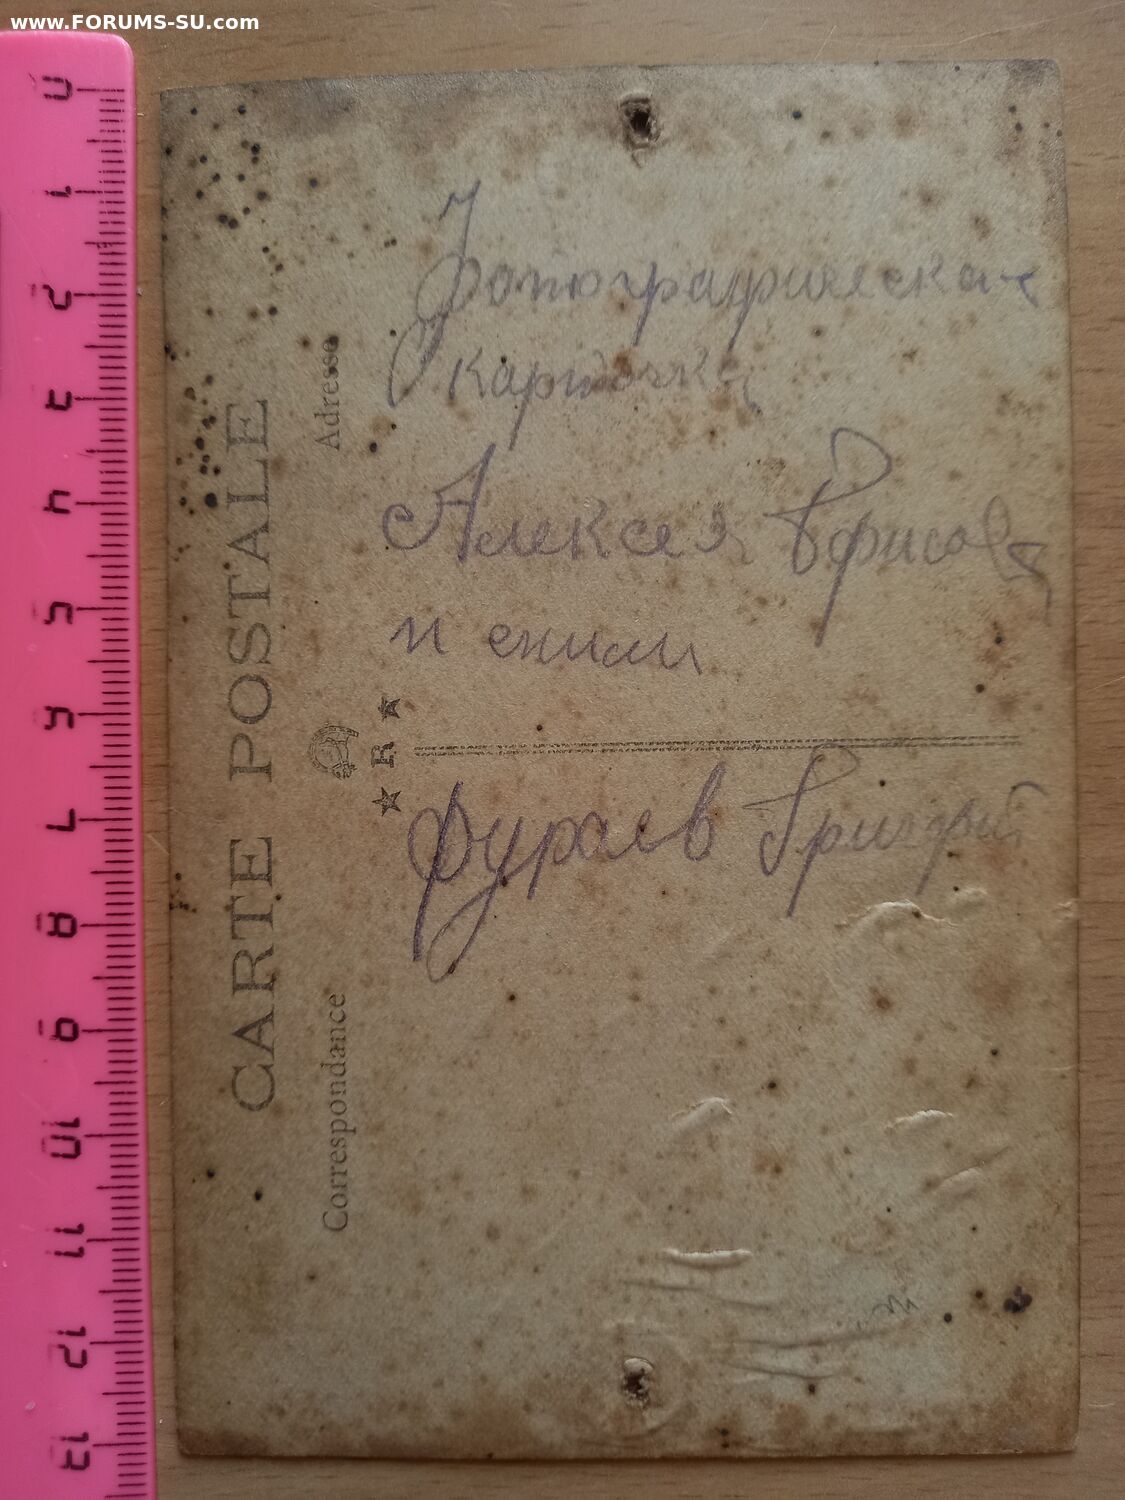 www.FORUMS-SU.com
0 1 2 3 4 5 6 7 8 9 10 11 12 13
CARTE POSTALE
Correspondance
Adresse
★ R ★
Фотографическая
карточка
Алексея Борисова
и снили
Фураев Григорий